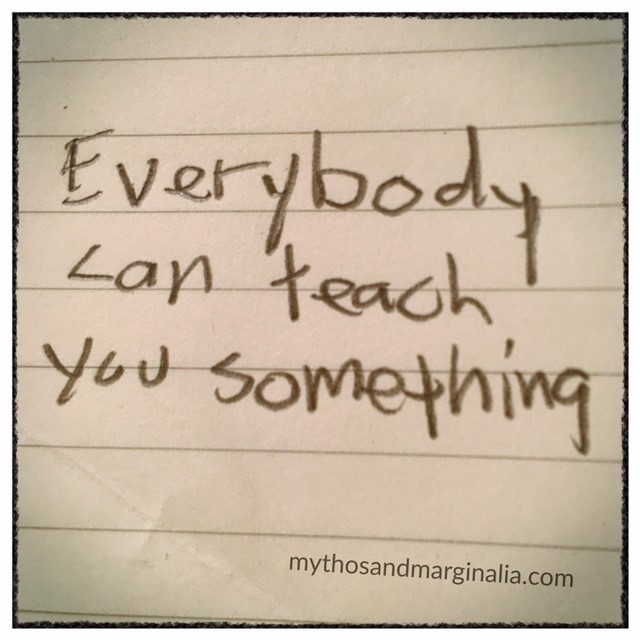 Everybody
can teach
you something
mythosandmarginalia.com